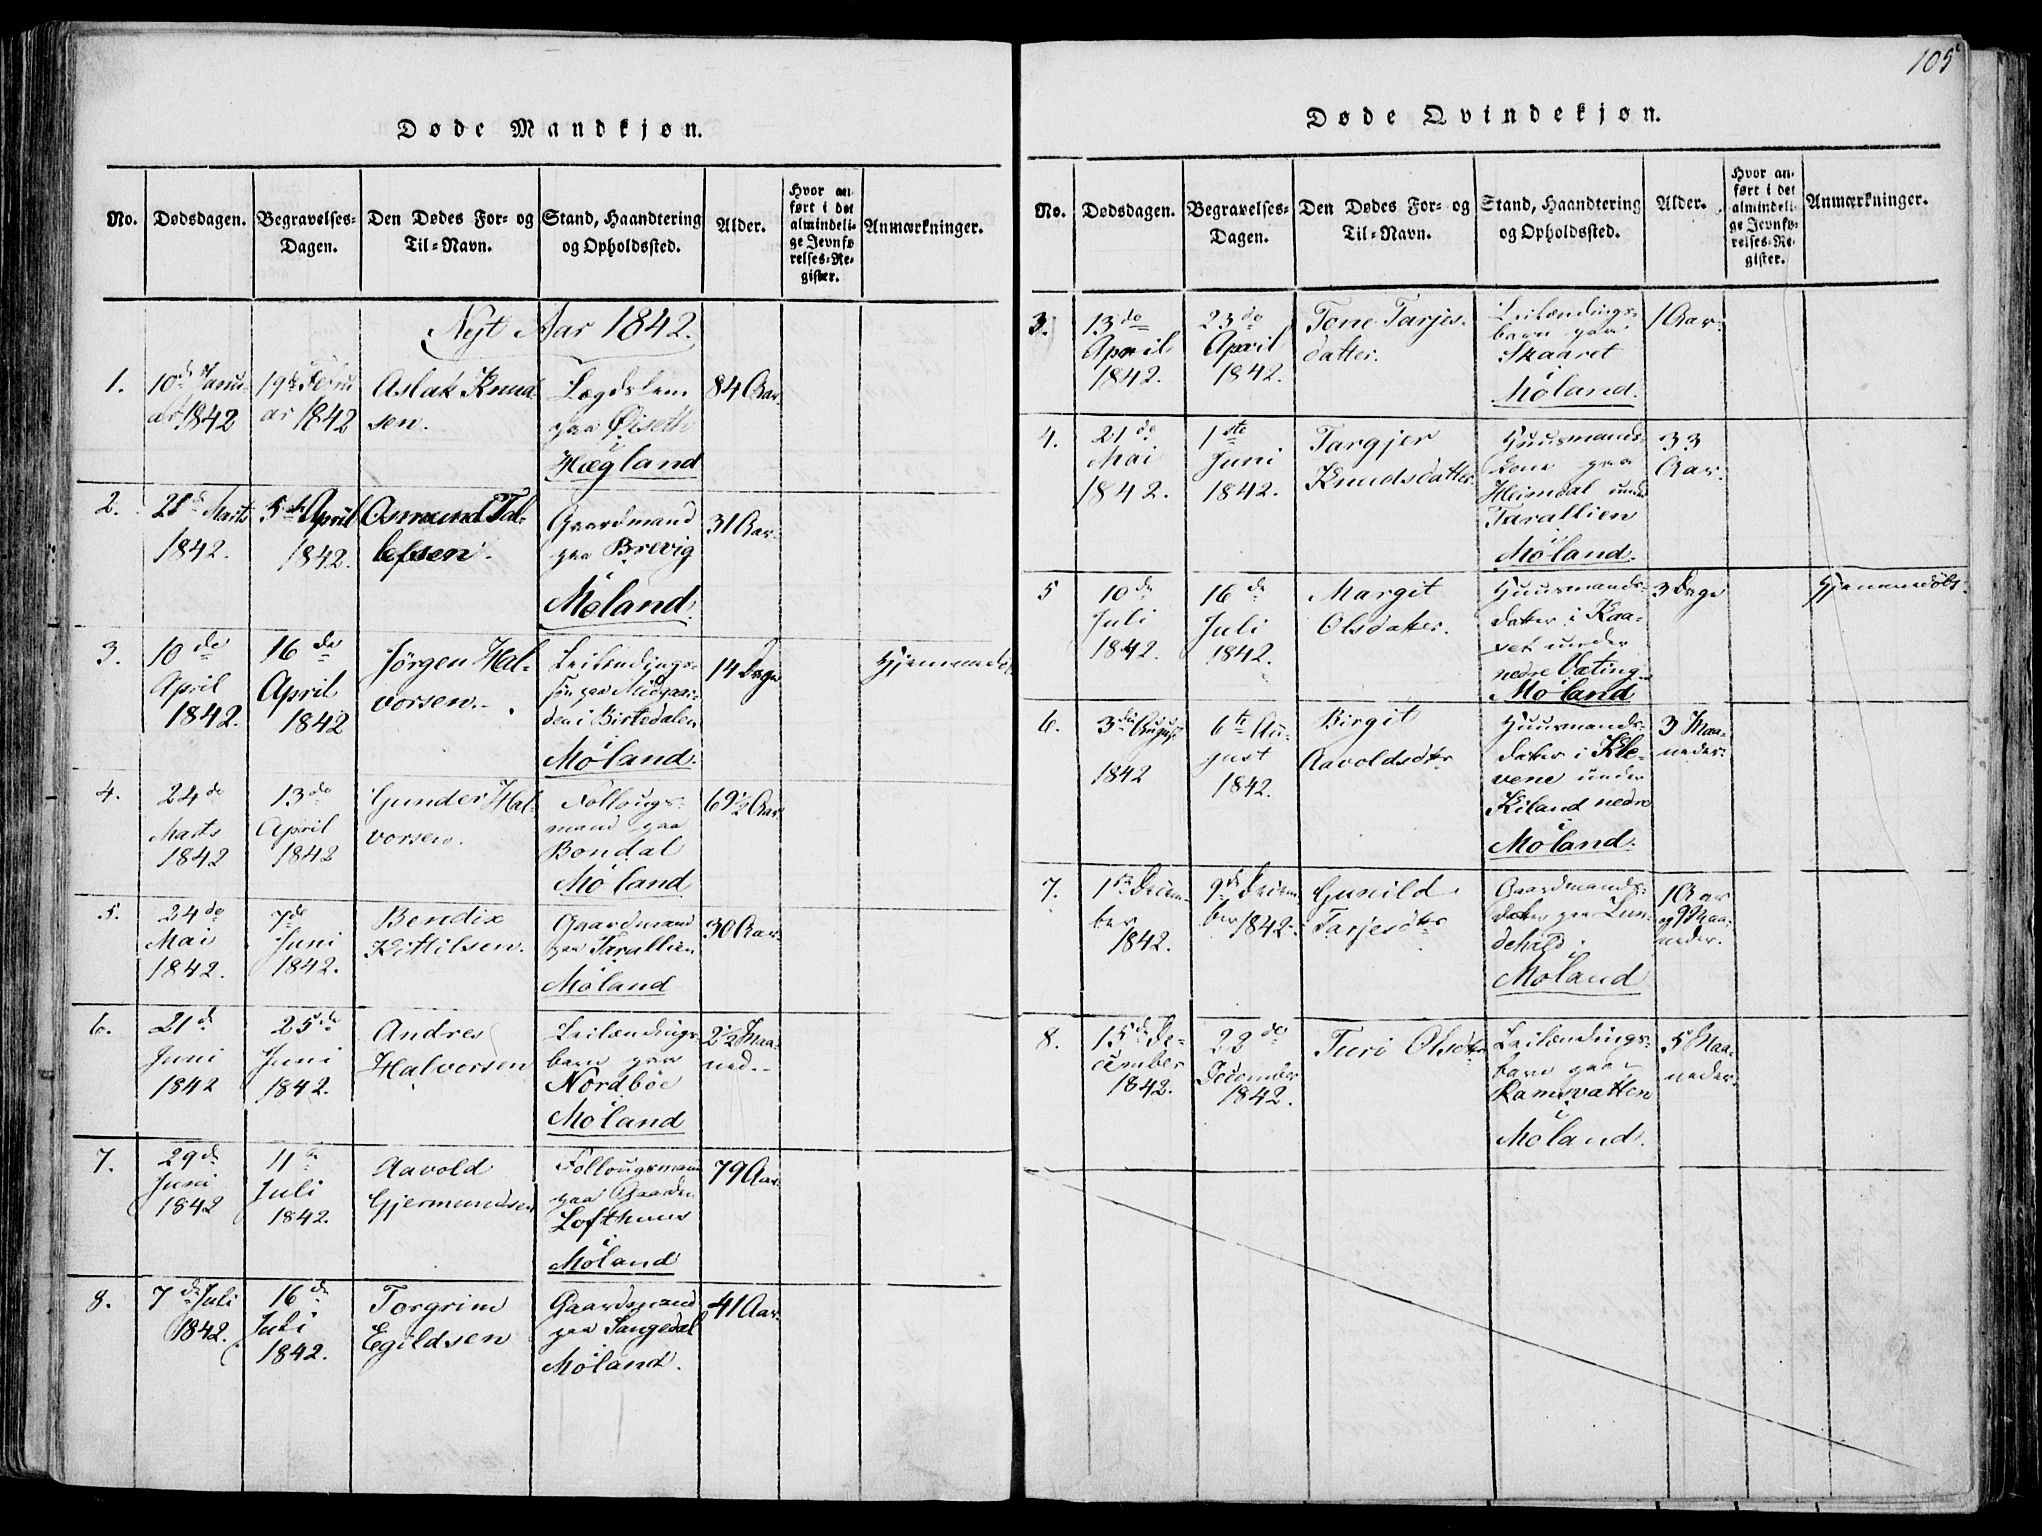 105
Døde Mandkjøn.
No.
Dødsdagen.
Begravelses-
Dagen.
Den Dødes For- og
Til-Navn.
Stand, Haandtering
og Opholdssted.
Alder.
Hvor an-
ført i det
almindeli-
ge Jevnfø-
relses-Re-
gister.
Anmærkninger.
Nyt Aar 1842.
1.
10de Janu
ar 1842
19de Febru
ar 1842
Aslak Knud
sen.
Lægdslem
paa Øiseth
i
Hægland
84 Aar.
2.
28de Marts
1842.
5te April
1842.
Osmund Tal-
lefsen.
Gaardmand
paa Brevig
i
Moland.
31 Aar.
3.
10de
April
1842.
16de
April
1842
Jørgen Hal-
vorsen.
Leilendings-
søn paa Midgaar-
den i Birtedalen
Moland.
14 Dage
Hjemmedøbt
4.
24de
Marts
1842
13de
April
1842
Gunder Hal-
vorsen.
Follougs-
mand paa
Bondal
i
Moland
69½ Aar
5.
24de
Mai
1842.
7de
Juni
1842.
Bendix
Kittilsen.
Gaardmand
paa Tarallien
i
Moland
30 Aar.
6.
21de
Juni
1842
25de
Juni
1842.
Andres
Halvorsen
Leilændings-
barn paa
Nordbøe
i
Moland
2½ Maa-
ned.
7.
29de
Juni
1842
11te
Juli
1842.
Aavold
Gjermundsen
Follougsmand
paa Gaarden
Lofthuus
i
Moland
79 Aar.
8.
7de Juli
1842.
16de
Juli
1842.
Torgrim
Egildsen
Gaardmand
paa Saugedal
i
Moland.
41 Aar.
Døde Qvindekjøn.
No.
Dødsdagen.
Begravelses-
Dagen.
Den Dødes For- og
Til-Navn.
Stand, Haandtering
og Opholdssted.
Alder.
Hvor an-
ført i det
almindeli-
ge Jevnfø-
relses-Re-
gister.
Anmærkninger.
3.
13de
April
1842.
23de
April
1842.
Tone Tarjes-
datter.
Leilændings-
barn paa
Skaaret
i
Moland.
1 Aar.
4.
21de
Mai
1842.
1ste
Juni
1842.
Targjer
Knudsdatter
Huusmands-
kone paa
Heimdal under
Tarallien
i
Moland.
33
Aar.
5
10de
Juli
1842.
16de
Juli
1842.
Margit
Olsdatter.
Huusmands-
datter i Kaa-
set under
nedre Væting
Moland
3 Dage
Hjemmedøbt.
6.
3die August
1842
6te Au-
gust
1842.
Birgit
Aavoldsdtr
Huusmands-
datter i Kle-
vene under
Kiland nedre
i
Moland.
3 Maa-
neder.
7.
1ste Decem-
ber
1842.
9de Decem-
ber 1842.
Gunild
Tarjesdtr
Gaardmands-
datter paa Lun-
dekild
i
Moland
1 Aar
og 9 Maa-
neder.
8.
15de De-
cember
1842.
22de
December
1842.
Turi Olsdtr
Leilændings-
barn paa
Ramsvatten
i
Moland.
5 Maa-
neder.